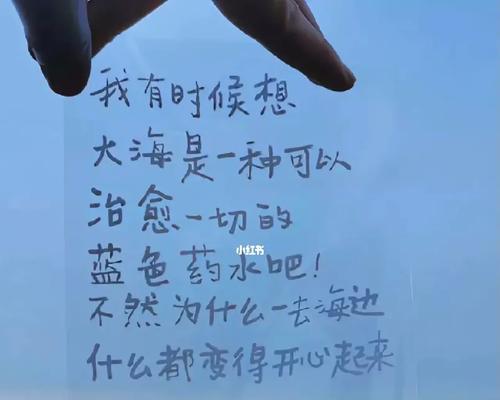 我有时候想
大海是一种可以
治愈一切的
小红书
蓝色药水吧！
不然为什么一去海边
什么都变得开心起来